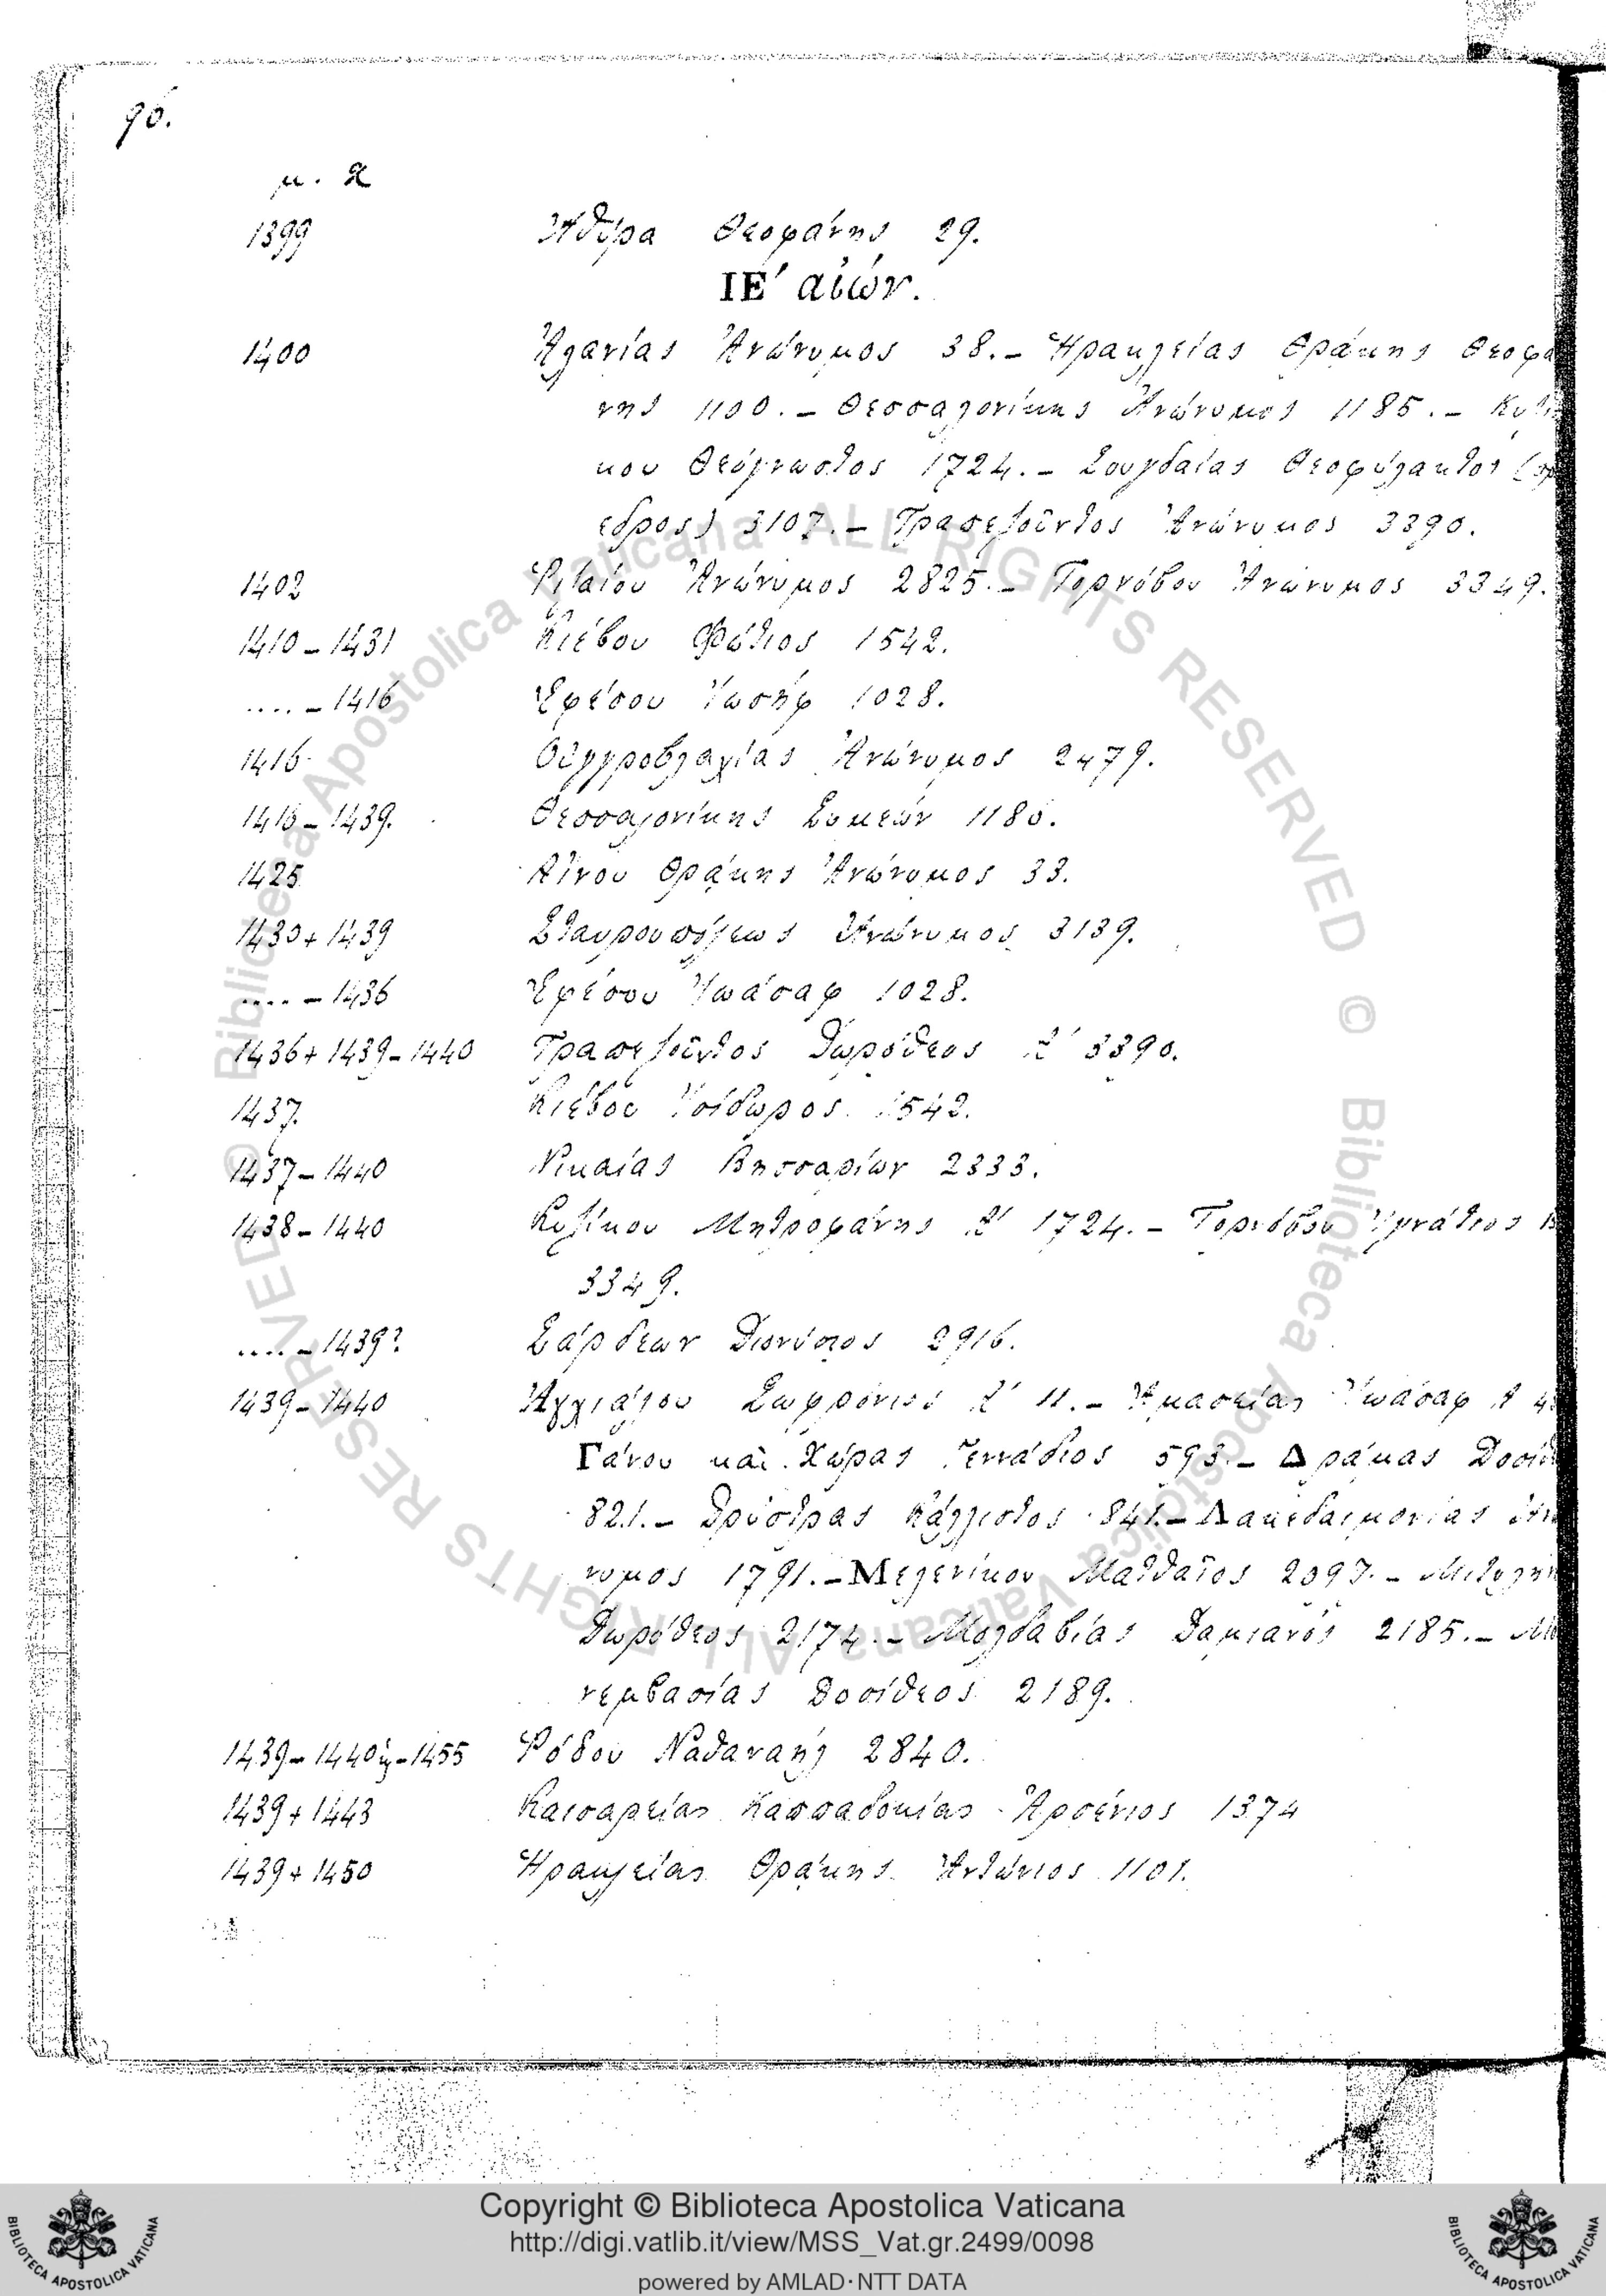 96.
μ. Χ
1399 Ἀθύρα Θεοφάνης 29.
ΙΕ΄ αἰών.
1400 Ἀλανίας Ἀνώνυμος 38. – Ἡρακλείας Θρᾴκης Θεοφά
νης 1100. – Θεσσαλονίκης Ἀνώνυμος 1185. – Κυζί
κου Θεόγνωστος 1724. – Σουγδαίας Θεοφύλακτος (πρ
εδρος) 3107. – Τραπεζοῦντος Ἀνώνυμος 3390.
1402 Ῥιζαίου Ἀνώνυμος 2825. – Τορνόβου Ἀνώνυμος 3349.
1410 – 1431 Κιέβου Φώτιος 1542.
.... – 1416 Ἐφέσου Ἰωσήφ 1028.
1416 Οὐγγροβλαχίας Ἀνώνυμος 2479.
1416 – 1439. Θεσσαλονίκης Συμεών 1186.
1425 Αἴνου Θρᾴκης Ἀνώνυμος 33.
1430 + 1439 Σταυρουπόλεως Ἀνώνυμος 3139.
.... – 1436 Ἐφέσου Ἰωάσαφ 1028.
1436 + 1439 – 1440 Τραπεζοῦντος Δωρόθεος Α΄ 3390.
1437. Κιέβου Ἰσίδωρος 1542.
1437 – 1440 Νικαίας Βησσαρίων 2333.
1438 – 1440 Κυζίκου Μητροφάνης Α΄ 1724. – Τορνόβου Ἰγνάτιος
3349.
.... – 1439? Σάρδεων Διονύσιος 2916.
1439 – 1440 Ἀγχιάλου Σωφρόνιος Α΄ 11. – Ἀμασείας Ἰωάσαφ Α 4
Γάνου καὶ Χώρας Γεννάδιος 593. – Δράμας Δοσίθ
821. – Δρύστρας Κάλλιστος 841. – Λακεδαιμονίας Ἀν
νυμος 1791. – Μελενίκου Ματθαῖος 2097. – Μιτυλήν
Δωρόθεος 2174. – Μολδαβίας Δαμιανός 2185. – Μο
νεμβασίας Δοσίθεος 2189.
1439 – 1440 ἢ – 1455 Ῥόδου Ναθαναήλ 2840.
1439 + 1443 Καισαρείας Καππαδοκίας Ἀρσένιος 1374
1439 + 1450 Ἡρακλείας Θρᾴκης Ἀντώνιος 1101.
© Biblioteca Apostolica Vaticana ALL RIGHTS RESERVED © Biblioteca Apostolica Vaticana ALL RIGHTS RESERVED
Copyright © Biblioteca Apostolica Vaticana
http://digi.vatlib.it/view/MSS_Vat.gr.2499/0098
powered by AMLAD·NTT DATA
BIBLIOTECA APOSTOLICA VATICANA
BIBLIOTECA APOSTOLICA VATICANA